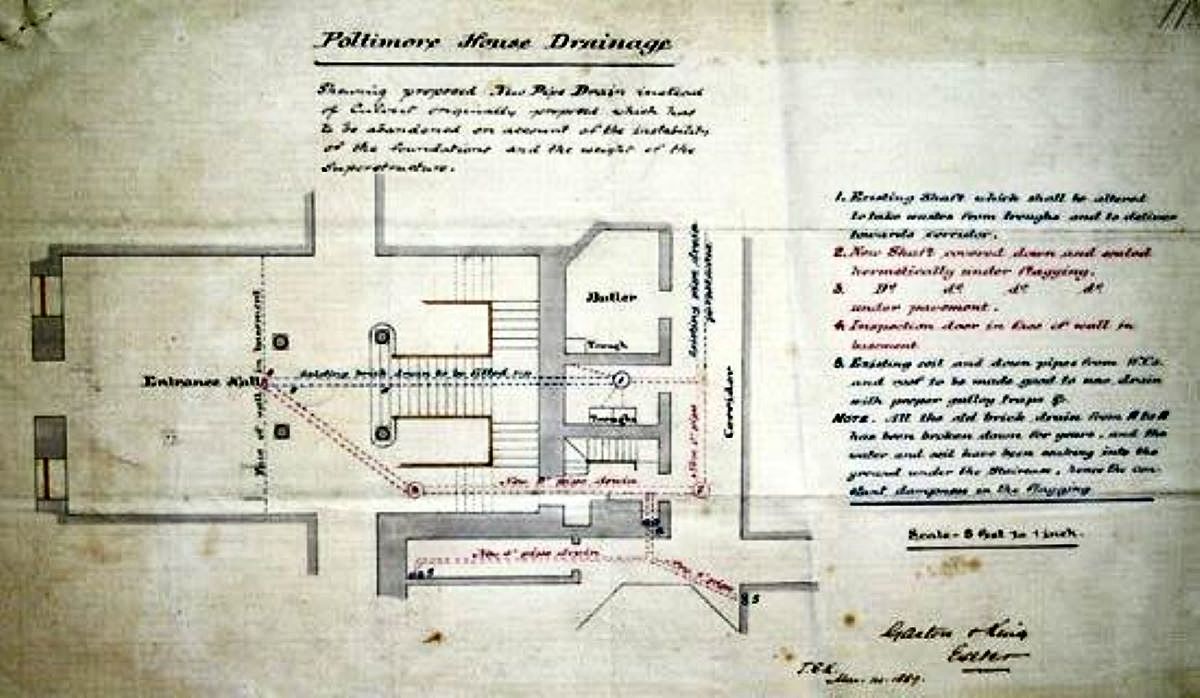 Poltimore House Drainage
Shewing proposed New Pipe Drain instead
of Culvert originally proposed which has
to be abandoned on account of the instability
of the foundations and the weight of the
Superstructure.
1. Existing Shaft which shall be altered
to take wastes from troughs and to deliver
towards corridor.
2. New Shaft covered down and sealed
hermetically under flagging.
3. Do do do do
under pavement.
4. Inspection door in face of wall in
basement
5. Existing soil and down pipes from W.Cs.
and roof to be made good to new drain
with proper gulley traps &c.
NOTE. All the old brick drain from A to B
has been broken down for years, and the
water and soil have been soaking into the
ground under the Staircase, hence the con-
stant dampness in the flagging
Scale - 8 feet to 1 inch.
Butler
Trough
Troughs
Entrance Hall
Face of wall in basement
Existing brick drain to be filled in
Existing pipe drain
Corridor
New 6" pipe
New 9" pipe drain
New 4" pipe drain
New 4" pipe
5
Garton & King
Exeter